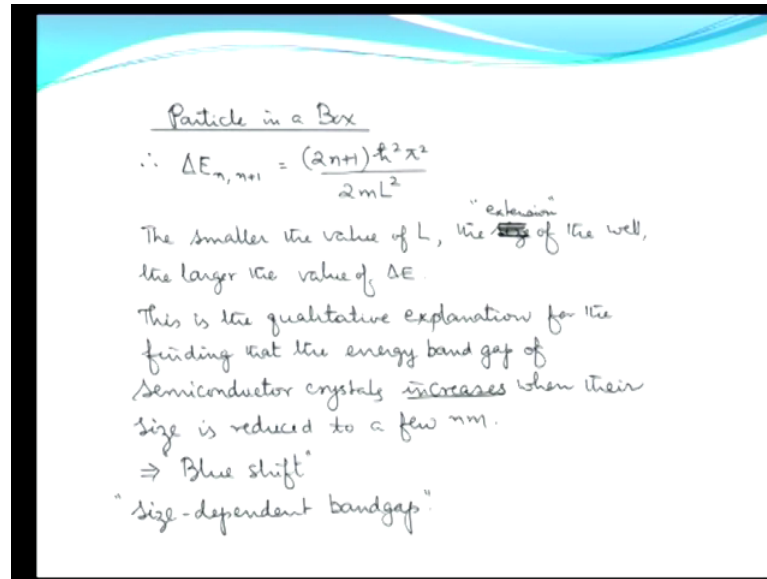 Particle in a Box
∴ ΔE_{n, n+1} = (2n+1) ħ² π² / 2mL²
The smaller the value of L, the "extension" of the well,
the larger the value of ΔE.
This is the qualitative explanation for the
finding that the energy band gap of
semiconductor crystals increases when their
size is reduced to a few nm.
⇒ "Blue shift"
"size-dependent bandgap".